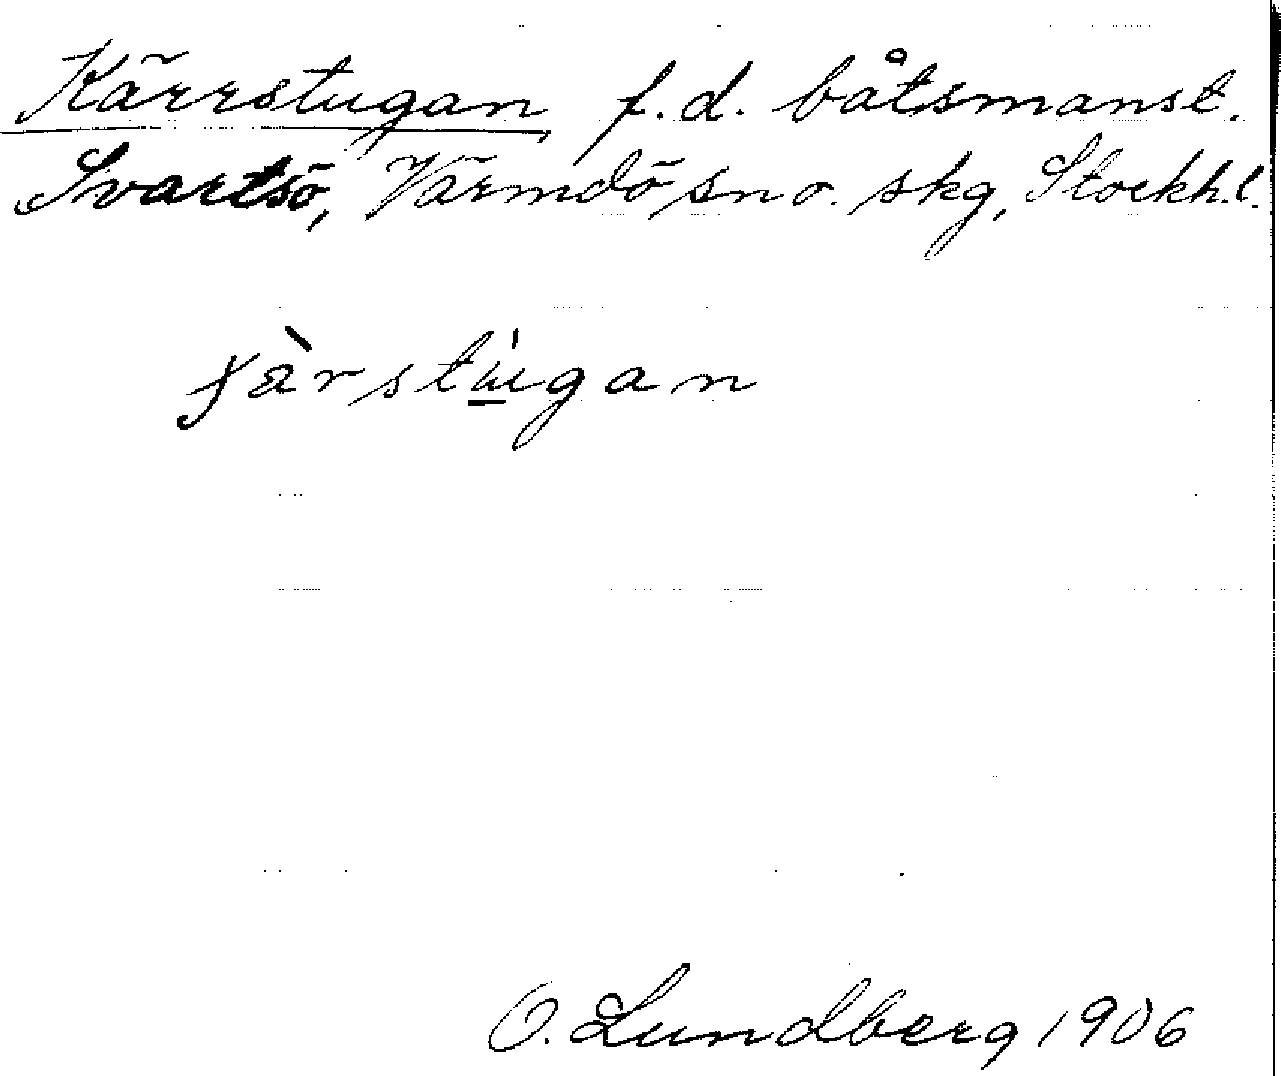 Kärrstugan f.d. båtsmanst.
Svartsö, Värmdö sn o. skg, Stockh.l.
O. Lundberg 1906